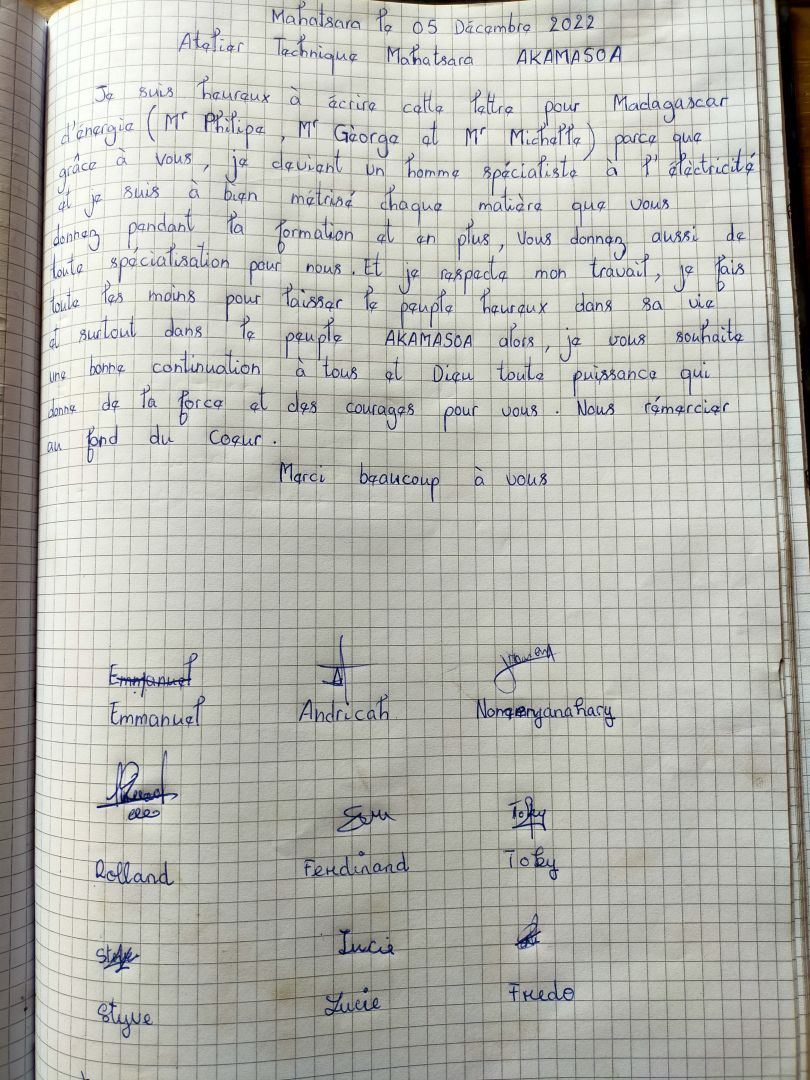 Mahatsara le 05 Décembre 2022
Atelier Technique Mahatsara AKAMASOA
Je suis heureux à écrire cette lettre pour Madagascar
d'énergie (Mr Philipe, Mr Géorge et Mr Michelle) parce que
grâce à vous, je devient un homme spécialiste à l'éléctricité
et je suis à bien métrisé chaque matière que vous
donnez pendant la formation et en plus, vous donnez aussi de
toute spécialisation pour nous. Et je respecte mon travail, je fais
toute les moins pour laisser le peuple heureux dans sa vie
et surtout dans le peuple AKAMASOA alors, je vous souhaite
une bonne continuation à tous et Dieu toute puissance qui
donne de la force et des courages pour vous. Nous rémercier
au fond du Coeur.
Merci beaucoup à vous
Emmanuel
Emmanuel Andricah
Rolland Ferdinand Toky
Toky
Lucie
Styve Lucie Fredo